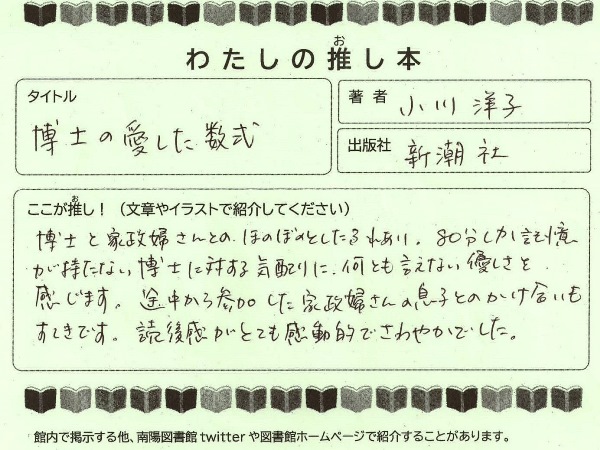 わたしの推し本
お
タイトル
博士の愛した数式
著者
小川 洋子
出版社
新潮社
ここが推し！（文章やイラストで紹介してください）
お
博士と家政婦さんとの、ほのぼのとしたふれあい。80分しか記憶
が持たない博士に対する気配りに、何とも言えない優しさを
感じます。途中から参加した家政婦さんの息子とのかけ合いも
すてきです。読後感がとても感動的でさわやかでした。
館内で掲示する他、南陽図書館twitterや図書館ホームページで紹介することがあります。